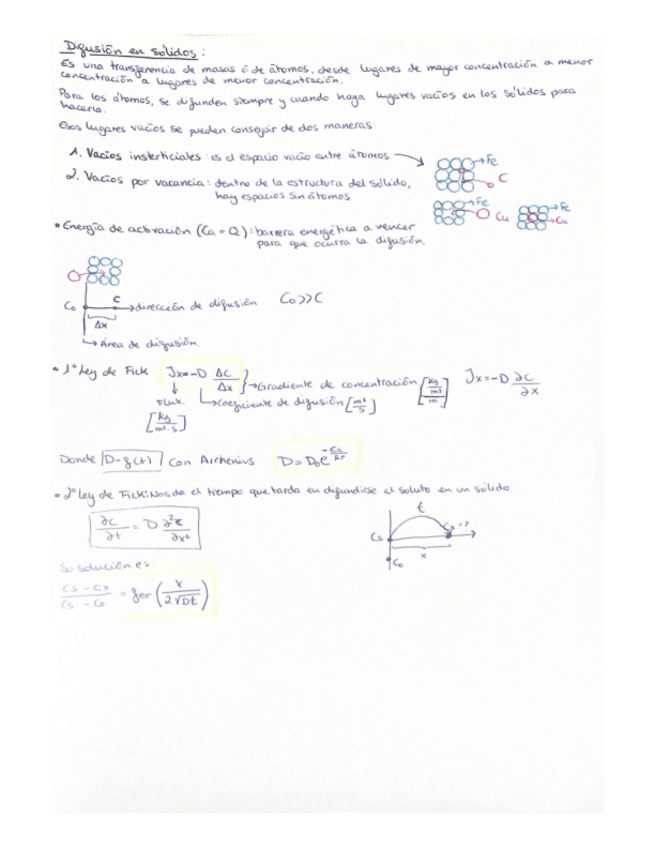 Difusión en sólidos:
Es una transferencia de masas ó de átomos, desde lugares de mayor concentración a menor
concentración a lugares de menor concentración.
Para los átomos, se difunden siempre y cuando haya lugares vacíos en los sólidos para
hacerlo.
Esos lugares vacíos se pueden conseguir de dos maneras:
1. Vacíos insterticiales: es el espacio vacío entre átomos →
Fe
C
2. Vacíos por vacancia: dentro de la estructura del sólido,
hay espacios sin átomos
Fe
Cu
Fe
Cu
• Energía de activación (Ea = Q): barrera energética a vencer
para que ocurra la difusión.
C₀ C → dirección de difusión C₀ >> C
Δx
→ Área de difusión.
• 1ª Ley de Fick Jx = -D ΔC/Δx } → Gradiente de concentración [kg/m3/m] Jx = -D ∂C/∂x
Flux. → coeficiente de difusión [m²/s]
[kg/m²·s]
Donde D = f(t) Con Arrhenius D = D₀e^(-Ea/RT)
• 2ª Ley de Fick: Nos da el tiempo que tarda en difundirse el soluto en un sólido
t
∂C/∂t = D ∂²C/∂x²
Cs Cx = ?
x
C₀
Su solución es
Cs - Cx / Cs - C₀ = fer (x / 2√Dt)